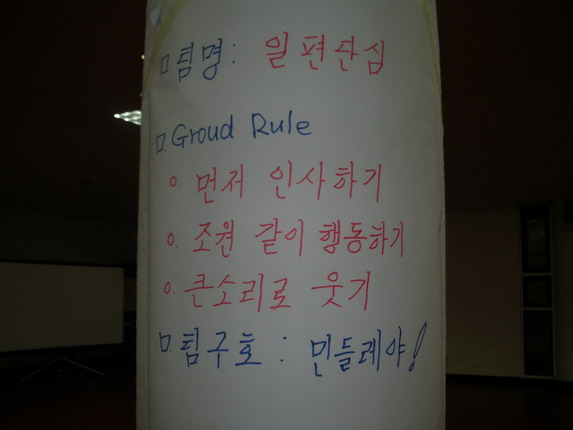 ㅁ.팀명 : 일편단심
ㅁ.Groud Rule
o. 먼저 인사하기
o. 조원 같이 행동하기
o. 큰소리로 웃기
ㅁ.팀구호 : 민들레야!